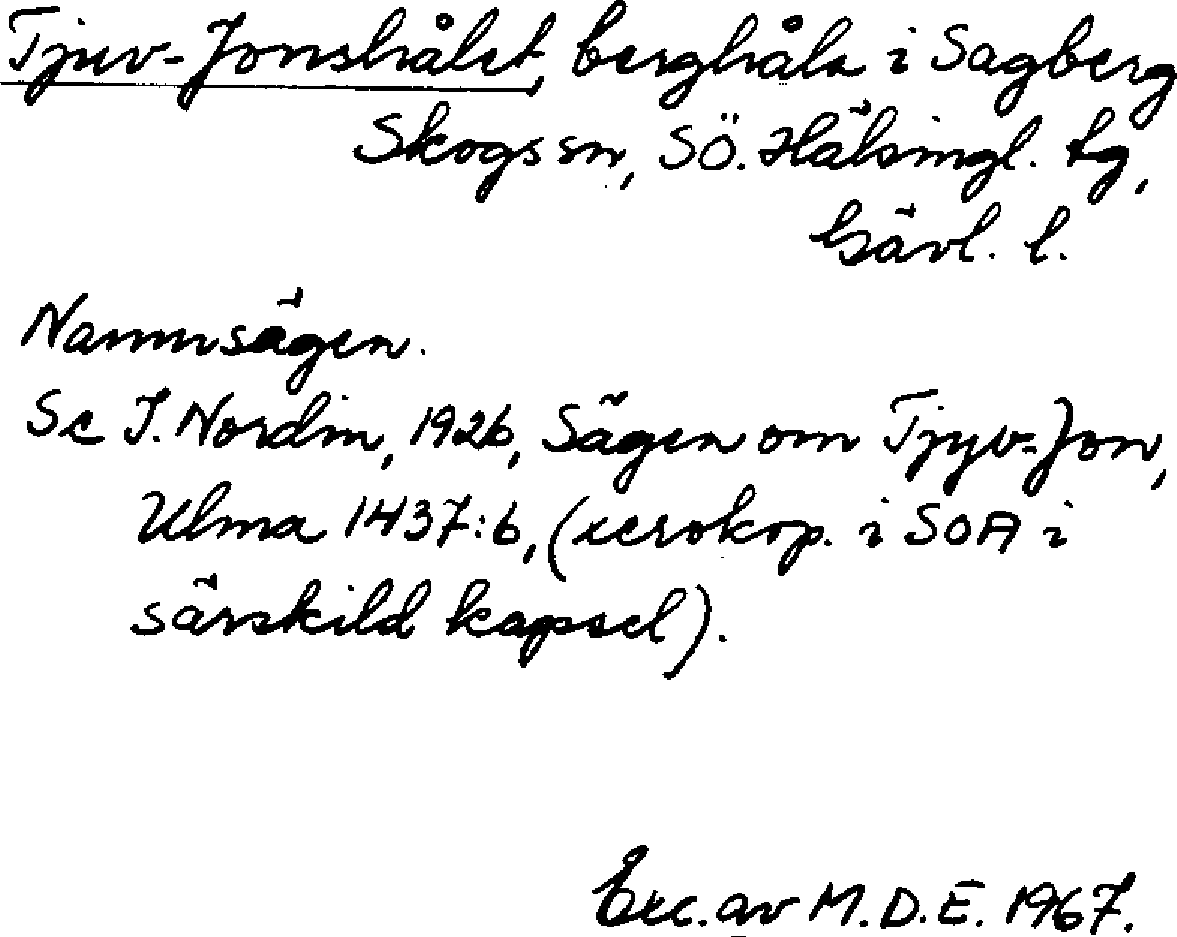 Tjuv-Jonshålet, berghåla i Sagberg
Skogs sn, SÖ. Hälsingl. tg,
Gävl. l.
Namnsägen.
Se J. Nordin, 1926, Sägen om Tjyv-Jon,
Ulma 1437:6, (xerokop. i SOA i
särskild kapsel).
Exc. av M.D.E. 1967.